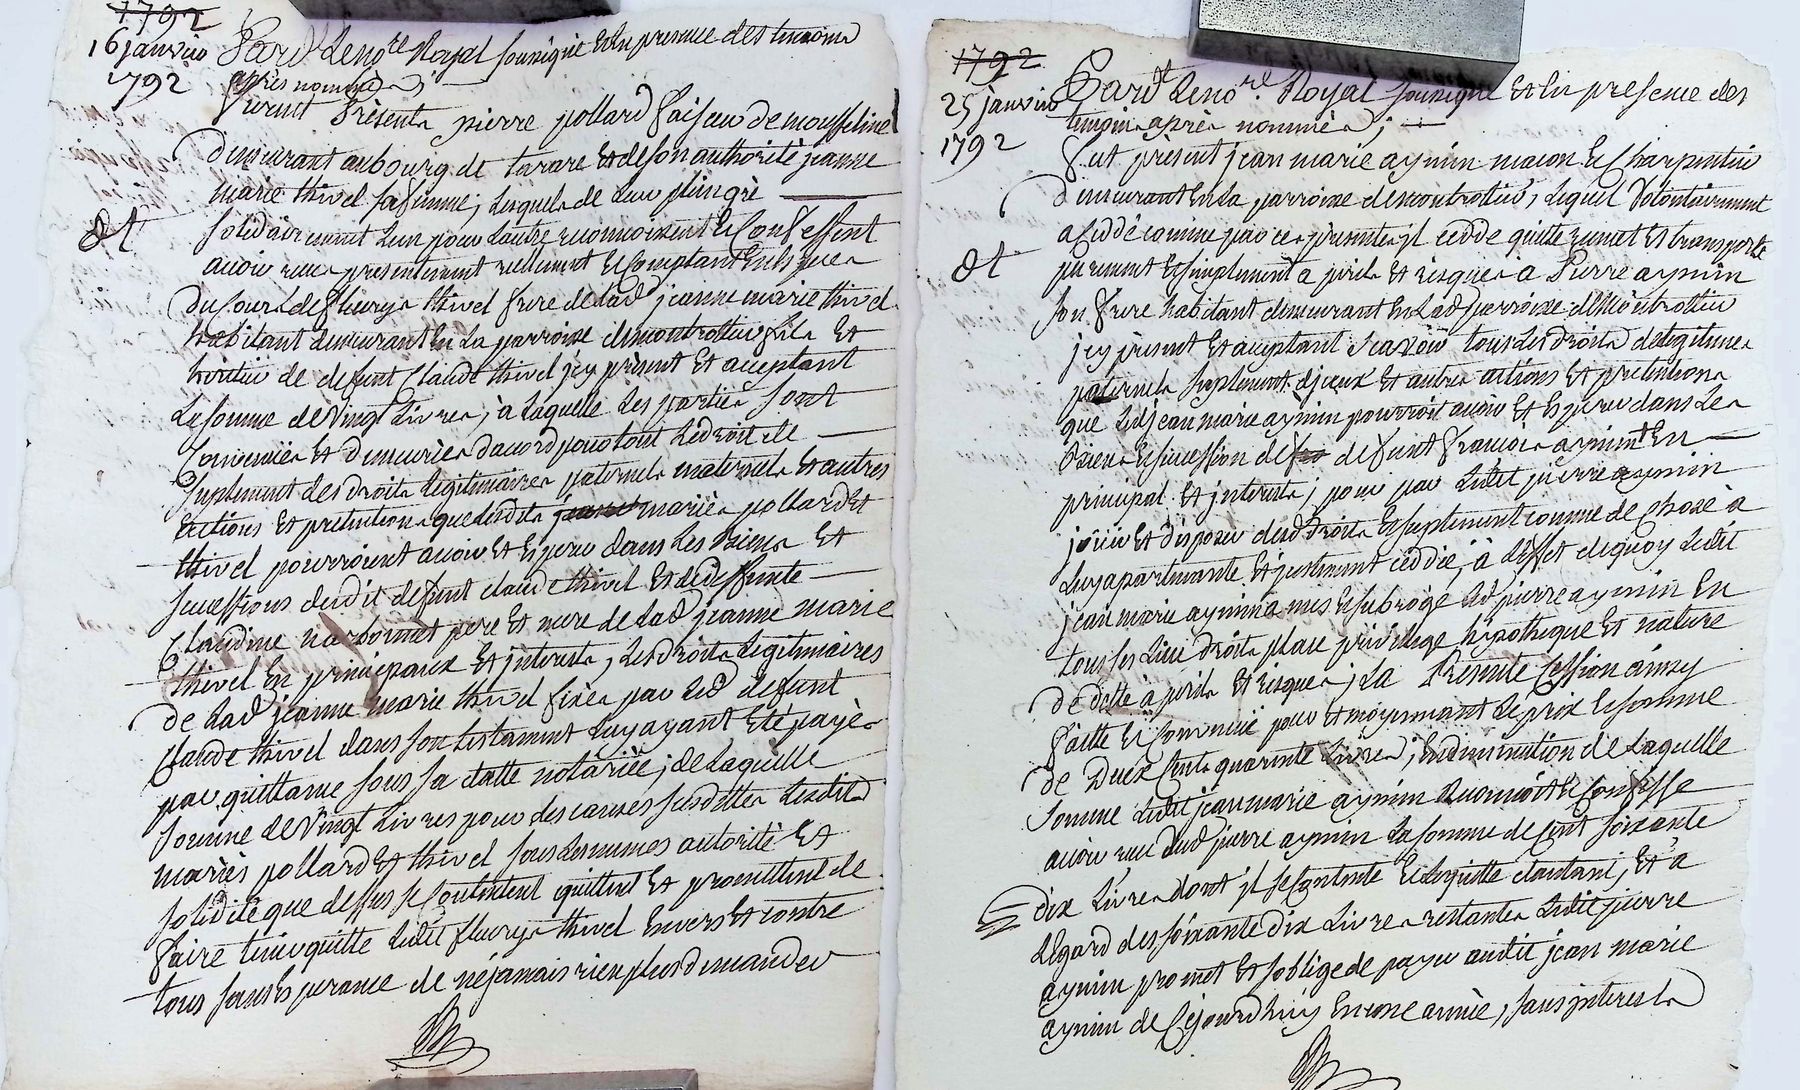 1792
16 janvier
1792
Pard.t Le no.re Royal soussigné Et En presence des temoins
après nommés;
furent Présents pierre pollard faiseur de mousseline
demeurant au bourg de tarare Et de son authorité jeanne
marie thivel sa femme, lesquels de leur plein gré
solidairement L'un pour L'autre reconnoissent & Confessent
avoir reçu presentement reellement & Comptant En Especes
du sour de fleury thivel frere de lad. jeanne marie thivel
habitant demeurant En La parroisse de montrottier fils Et
heritier de defunt Claude thivel jcy présent Et acceptant
La somme de Vingt Livres, à laquelle les parties sont
Convenües Et demeurées d'accord pour tout Le droit de
suplement des droits legitimaires paternels maternels Et autres
actions Et pretentions que lesdits jeanne mariés pollard Et
thivel pourroient avoir Et Esperer dans Les Biens Et
successions dudit defunt claude thivel Et de deffunte
Claudine narbonnet pere Et mere de lad. jeanne marie
thivel En principaux Et jnterets, Les droits Legitimaires
de lad. jeanne marie thivel fixés par led. defunt
Claude thivel dans son testament Luy ayant Eté payés
par quittance sous sa datte notariée; de Laquelle
somme de Vingt Livres pour des causes susdittes Lesdits
mariés pollard Et thivel sous Les memes autorité Et
solidité que dessus se Contentent quittent Et promettent de
faire tenir quitte Ledit fleury thivel Envers Et contre
tous sans Esperance de ne jamais rien plus demander
1792
25 janvier
1792
Pard.t Le no.re Royal soussigné Et En presence des
temoins après nommés;
fut présent jean marie aymin macon & Charpentier
demeurant En La parroisse de montrottier, Lequel Volontairement
a Ceddé comme par ces presentes jl cedde quitte remet Et transporte
purement & simplement a perils Et risques à Pierre aymin
son frere habitant demeurant En Lad. parroisse de montrottier
jcy présent Et acceptant sçavoir tous Les droits de legitimes
paternels suplement d'jceux Et autres actions Et pretentions
que Led. jean marie aymin pourroit avoir Et Esperer dans Les
Biens & succession de feu defunt francois aymin En
principal Et jnterets; pour par Ledit pierre aymin
jouir Et disposer desd. droits & suplement comme de Chose à
Luy apartenante Et justement ceddée; à L'effet de quoy Ledit
jean marie aymin a mis & subrogé Led. pierre aymin En
tous ses Lieu droits place privilege hypotheque Et nature
de dette à perils Et risques; La Presente Cession ainsy
faitte & Convenüe pour Et moyennant Le prix & somme
de Deux Cents quarante Livres; En diminution de Laquelle
somme Ledit jean marie aymin reconnoit & Confesse
avoir reçu dud. pierre aymin La somme de Cent soixante
dix Livres dont jl se Contente & L'en quitte d'autant; Et à
L'egard des soixante dix Livres restantes Ledit pierre
aymin promet Et s'oblige de payer audit jean marie
aymin de Cejourd'huy En une année, sans jnterets